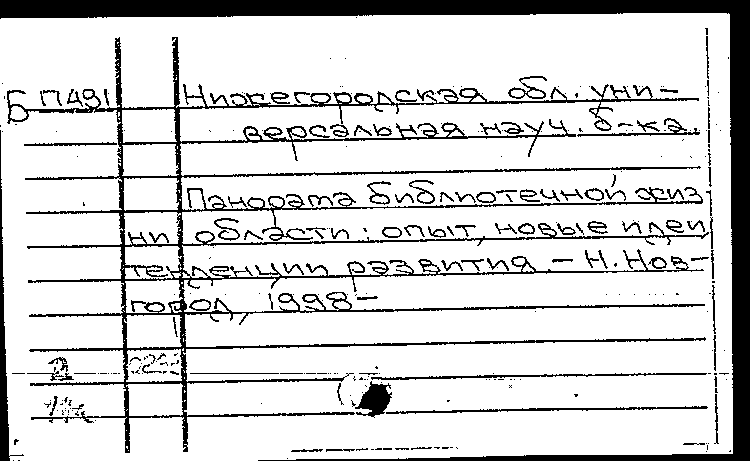 Б П491 Нижегородская обл. уни-
версальная науч. б-ка.
Панорама библиотечной жиз-
ни области: опыт, новые идеи
тенденции развития. - Н. Нов-
город, 1998 -
2